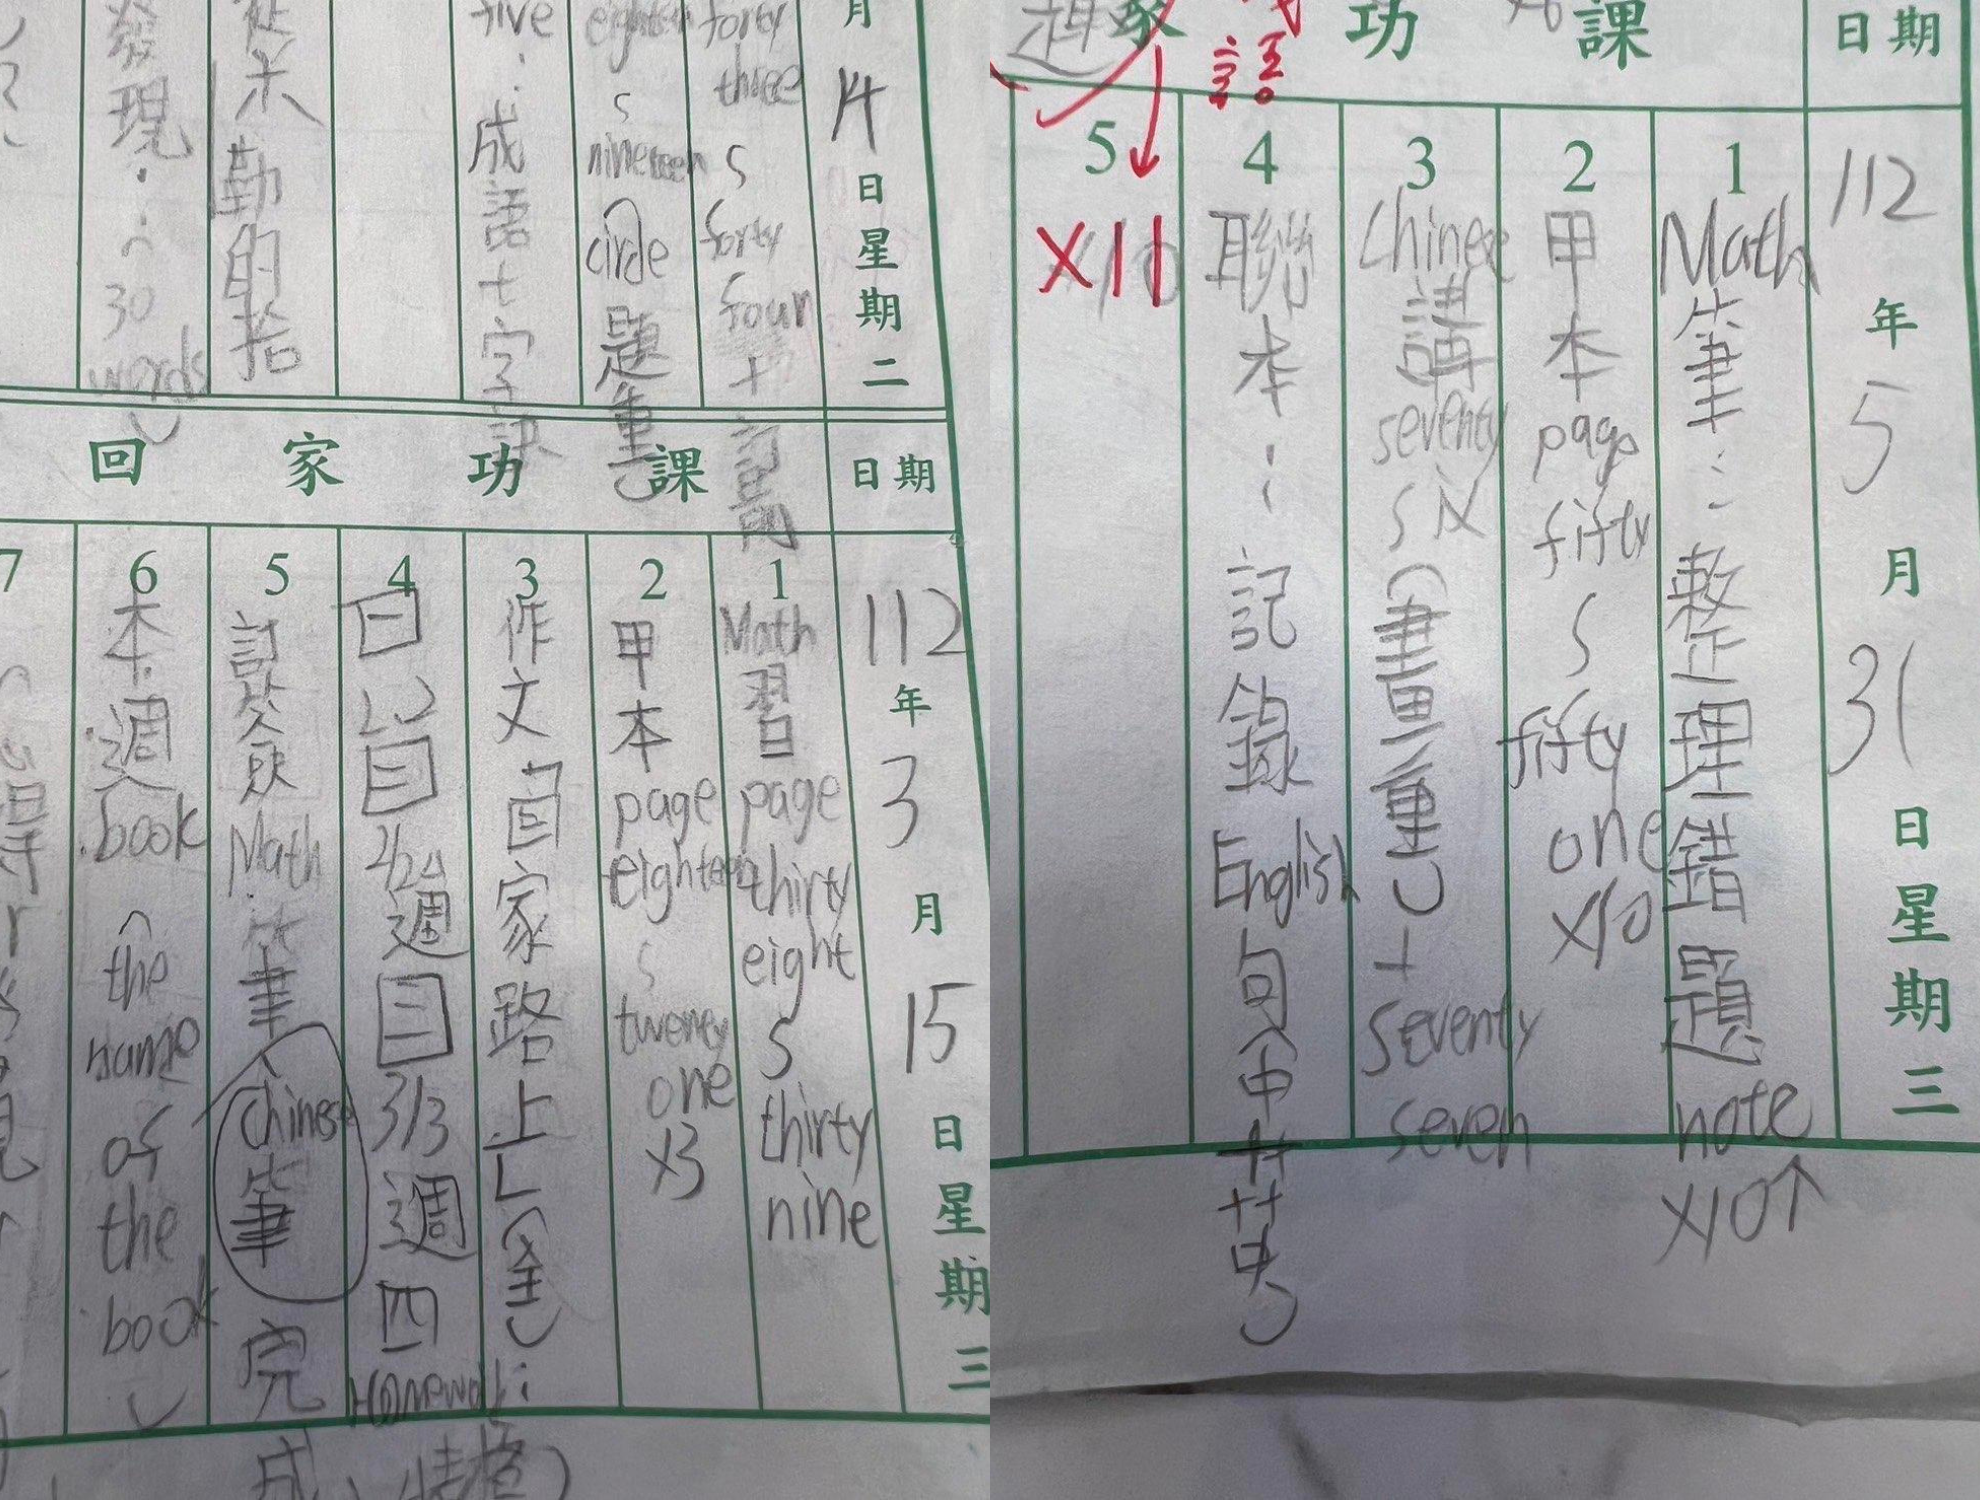 月 14 日 星 期 二
forty three s forty four + 訂
eighteen s nineteen circle 題 重
five : 成 語 十 字 訣
勤 的 拾
發 現 : 30 words
日期
回 家 功 課
112 年 3 月 15 日 星 期 三
1 Math 習 page thirty eight s thirty nine
2 甲 本 page eighteen s twenty one x3
3 作 文 「 回 家 路 上 」
4 日 週 三 3/3 週 四 Homework
5 訂 簽 Math 筆 Chinese 筆 完 成
6 本 週 book ( the name of the book )
7
日期
家 功 課
語
112 年 5 月 31 日 星 期 三
1 Math 筆 : 整 理 錯 題 note x10↑
2 甲 本 page fifty s fifty one x10
3 Chinese 講 seventy six ( 畫 重 ) + seventy seven
4 聯 本 : 記 錄 English 句 ( 中 + 英 )
5 x11